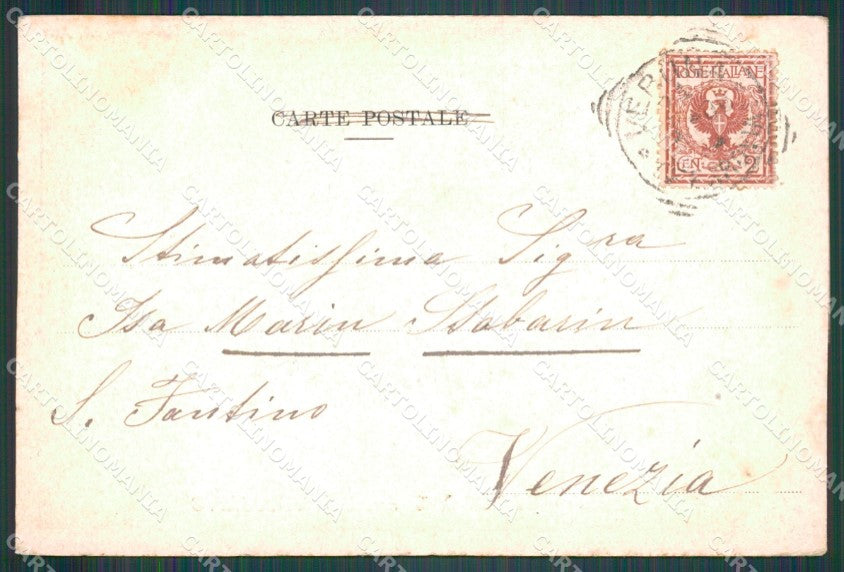 CARTE POSTALE
POSTE ITALIANE
CEN. 2
Stimatissima Sig.ra
Isa Marin
S. Fantino
Venezia
CARTOLINOMANIA